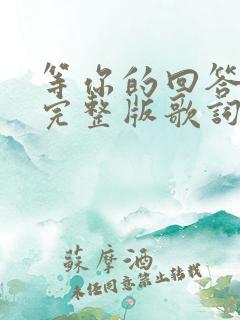 等你的回答
完整版歌词
蘇摩酒
未经同意禁止转载